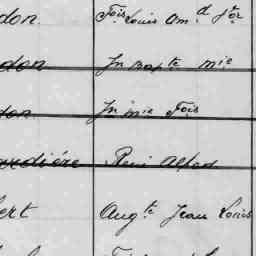 don. Fois Louis Am.d H.tor
don Jn Bap.te M.ie
don Jn M.ie Fois
audière René Alfred
ert Aug.te Jean Louis